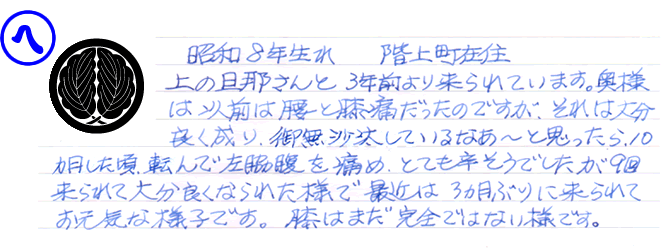 八
昭和8年生れ 階上町在住
上の旦那さんと3年前より来られています。奥様
は以前は腰と膝痛だったのですが、それは大分
良く成り、御無沙汰しているなあ〜と思ったら、10
カ月した頃、転んで左脇腹を痛め、とても辛そうでしたが9回
来られて大分良くなられた様で最近は3カ月ぶりに来られて
お元気な様子です。膝はまだ完全ではない様です。